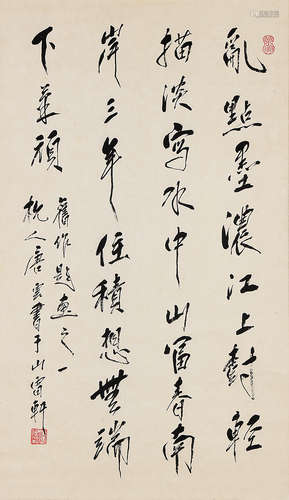 亂點墨濃江上樹輕
描淡寫水中山富春南
岸三年住積想無端
下筆頑
舊作題畫之一
杭人唐雲書于山雷軒